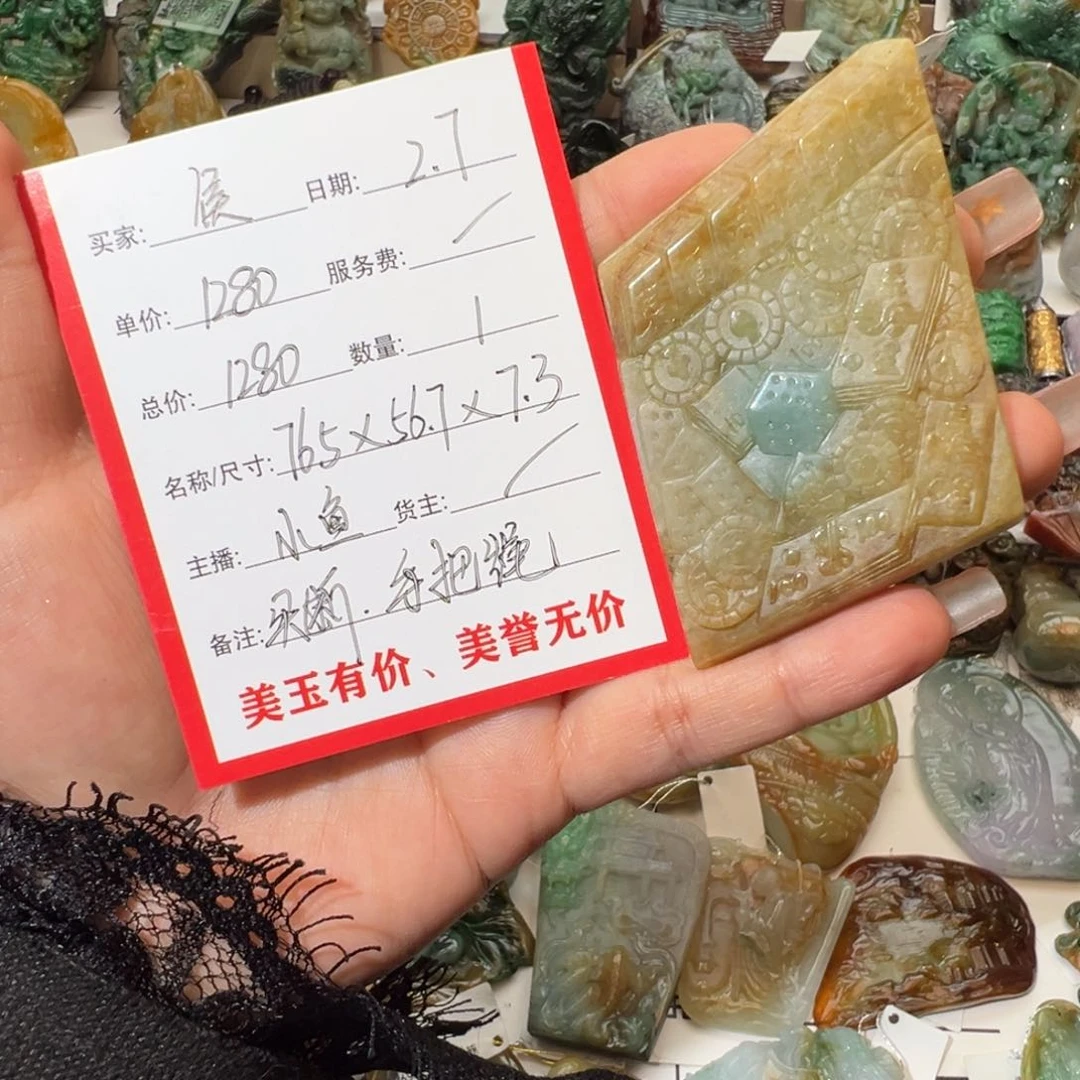 买家: 侯 日期: 2.7
单价: 1280 服务费:
总价: 1280 数量: 1
名称/尺寸: 76.5×56.7×7.3
主播: 小鱼 货主:
备注: 买断. 手把绳1
美玉有价、美誉无价